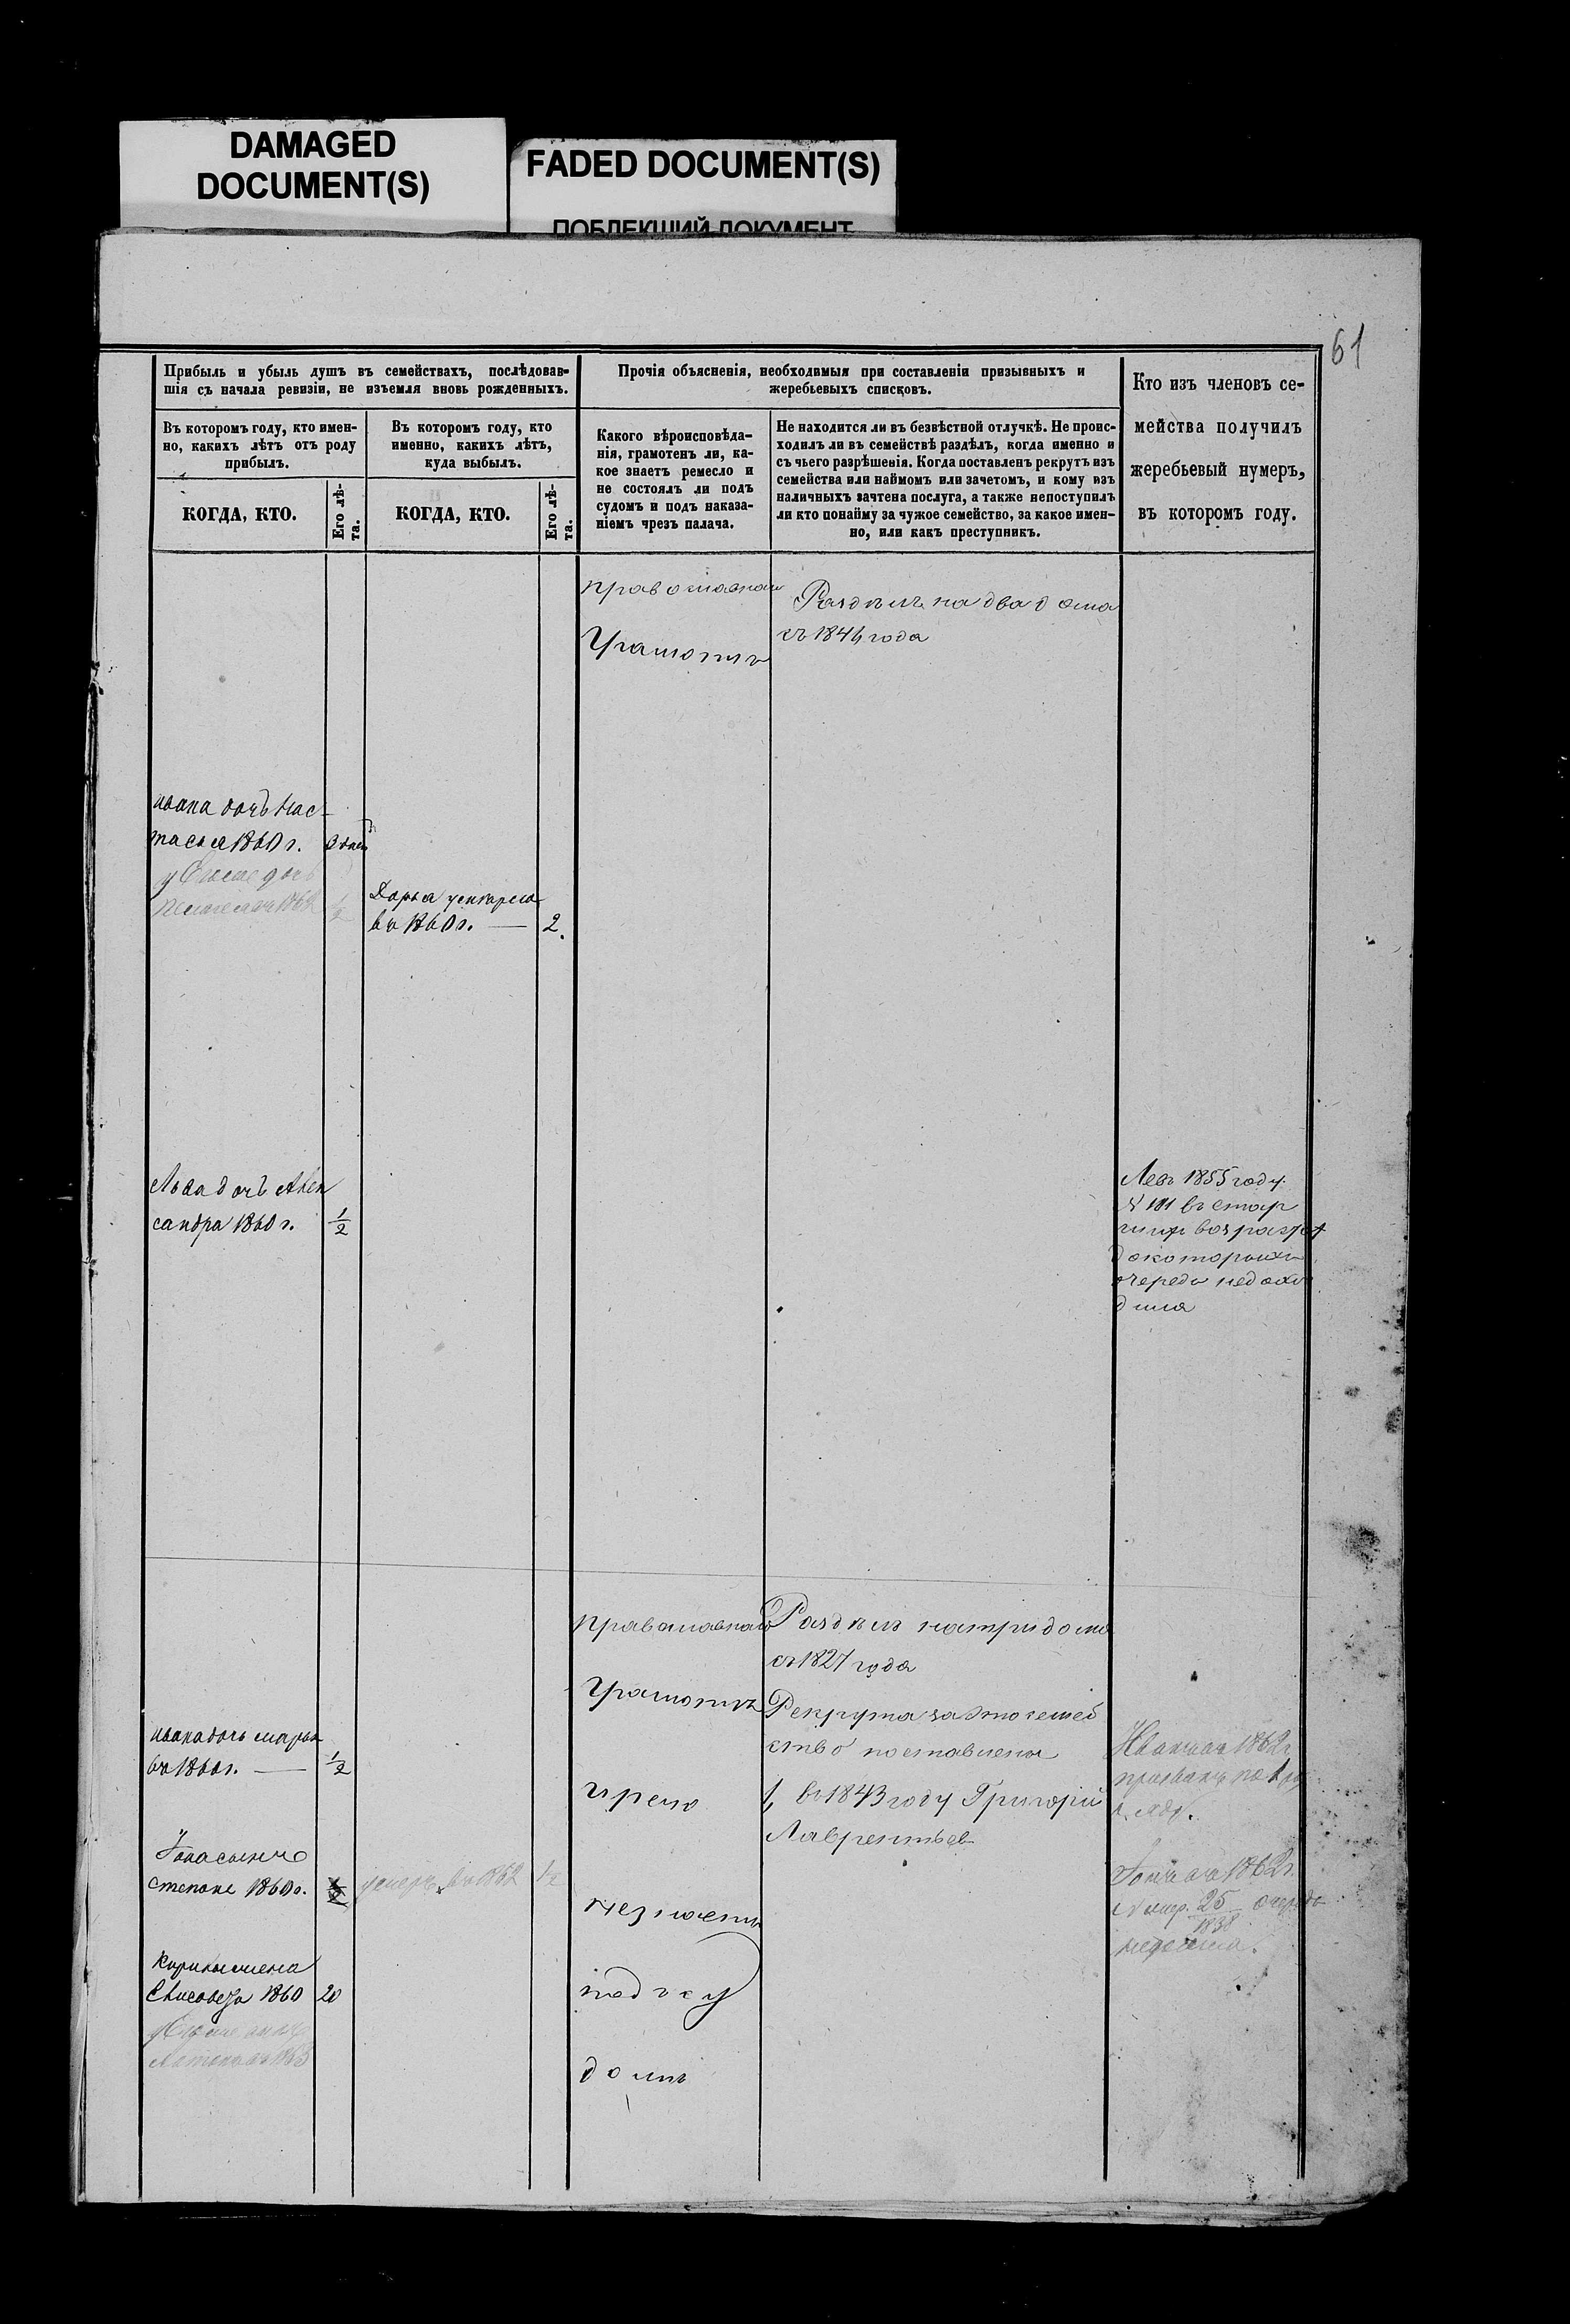 DAMAGED
DOCUMENT(S)
FADED DOCUMENT(S)
ПОБЛЕКШИЙ ДОКУМЕНТ
61
Прибыль и убыль душъ въ семействахъ, послѣдовав-
шія съ начала ревизіи, не изъемля вновь рожденныхъ.
Въ которомъ году, кто имен-
но, какихъ лѣтъ отъ роду
прибылъ.
КОГДА, КТО.
Его лѣ-
та.
Въ которомъ году, кто
именно, какихъ лѣтъ,
куда выбылъ.
КОГДА, КТО.
Его лѣ-
та.
Прочія объясненія, необходимыя при составленіи призывныхъ и
жеребьевыхъ списковъ.
Какого вѣроисповѣда-
нія, грамотенъ ли, ка-
кое знаетъ ремесло и
не состоялъ ли подъ
судомъ и подъ наказа-
ніемъ чрезъ палача.
Не находится ли въ безвѣстной отлучкѣ. Не проис-
ходилъ ли въ семействѣ раздѣлъ, когда именно и
съ чьего разрѣшенія. Когда поставленъ рекрутъ изъ
семейства или наймомъ или зачетомъ, и кому изъ
наличныхъ зачтена послуга, а также непоступилъ
ли кто понайму за чужое семейство, за какое имен-
но, или какъ преступникъ.
Кто изъ членовъ се-
мейства получилъ
жеребьевый нумеръ,
въ которомъ году.
православнаго
Грамотѣ
Раздѣлъ на два дома
съ 1846 года
ивана дочь Нас-
тасья 1860 г.
дочь
1862 1/2
Дарья умерла
въ 1860 г. — 2.
Льва дочь Алек
сандра 1860 г. 1/2
Левъ 1855 году
N 181 въ стар
шимъ возрастѣ
до которыхъ
очередь недохо
дила
православнаго
Грамотѣ
ивана дочь марья
въ 1860 г. — 1/2
Раздѣлъ на три дома
съ 1827 года
Рекрута за это семей
ство поставлены
1, въ 1843 году Григорій
Лаврентьев
1862 г
сынъ
степанъ 1860 г. 1/2
умеръ въ 1862 1/2
незнаетъ
подсу
домъ
1862 г.
25 очередь
1838
жена
Елисавета 1860 20
1863